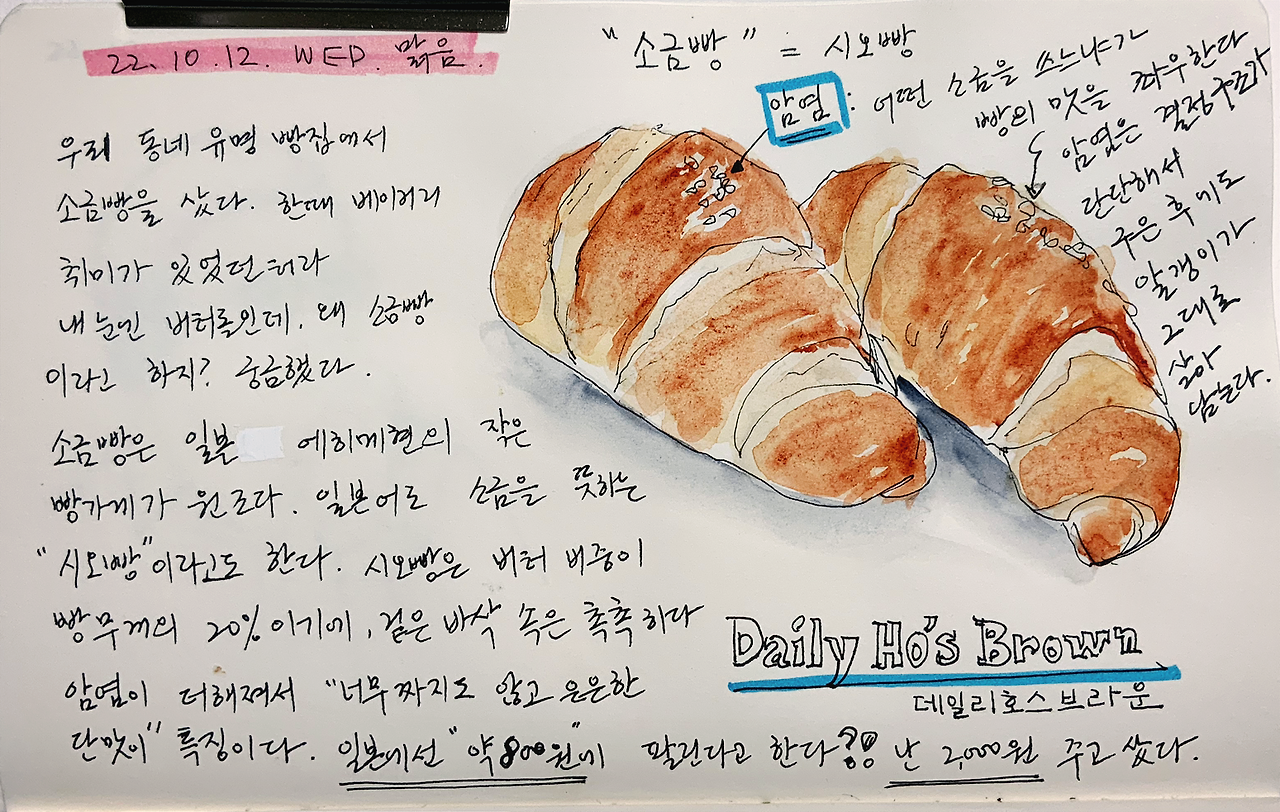 22.10.12. WED. 맑음.
"소금빵" = 시오빵
암염 : 어떤 소금을 쓰느냐가
빵의 맛을 좌우한다
암염은 결정구조가
단단해서
구운 후에도
알갱이가
그대로
살아
남는다.
우리 동네 유명 빵집에서
소금빵을 샀다. 한때 베이커리
취미가 있었던터라
내 눈엔 버터롤인데, 왜 소금빵
이라고 하지? 궁금했다.
소금빵은 일본 에히메현의 작은
빵가게가 원조다. 일본어로 소금을 뜻하는
"시오빵"이라고도 한다. 시오빵은 버터 비중이
빵무게의 20%이기에, 겉은 바삭 속은 촉촉하다
암염이 더해져서 "너무 짜지도 않고 은은한
단맛이" 특징이다. 일본에선 "약 800원"에 팔린다고 한다?! 난 2,000원 주고 샀다.
Daily Ho's Brown
데일리호스브라운